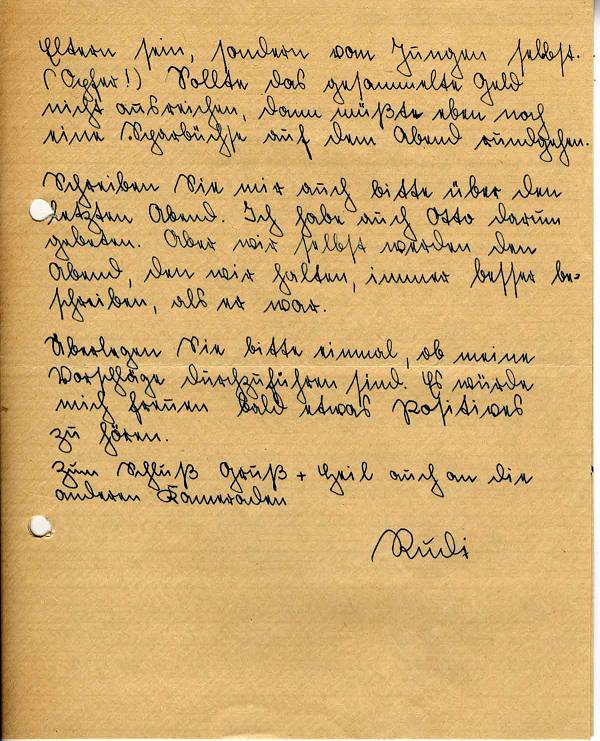 Eltern sein, sondern vom Jungen selbst.
(Opfer!) Sollte das gesammelte Geld
nicht ausreichen, dann müßte eben noch
eine Sparbüchse auf dem Abend rundgehen.
Schreiben Sie mir auch bitte über den
letzten Abend. Ich habe auch Otto darum
gebeten. Aber wir selbst werden den
Abend, den wir halten, immer besser be-
schreiben, als er war.
Überlegen Sie bitte einmal, ob meine
Vorschläge durchzuführen sind. Es würde
mich freuen bald etwas Positives
zu hören.
Zum Schluß Gruß + Heil auch an die
anderen Kameraden
Rudi